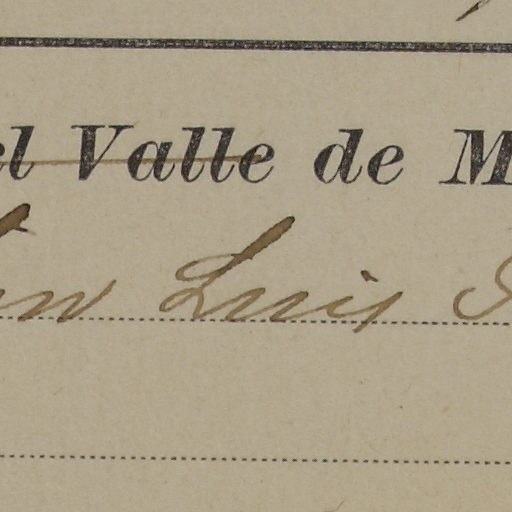 el Valle de M
Luis